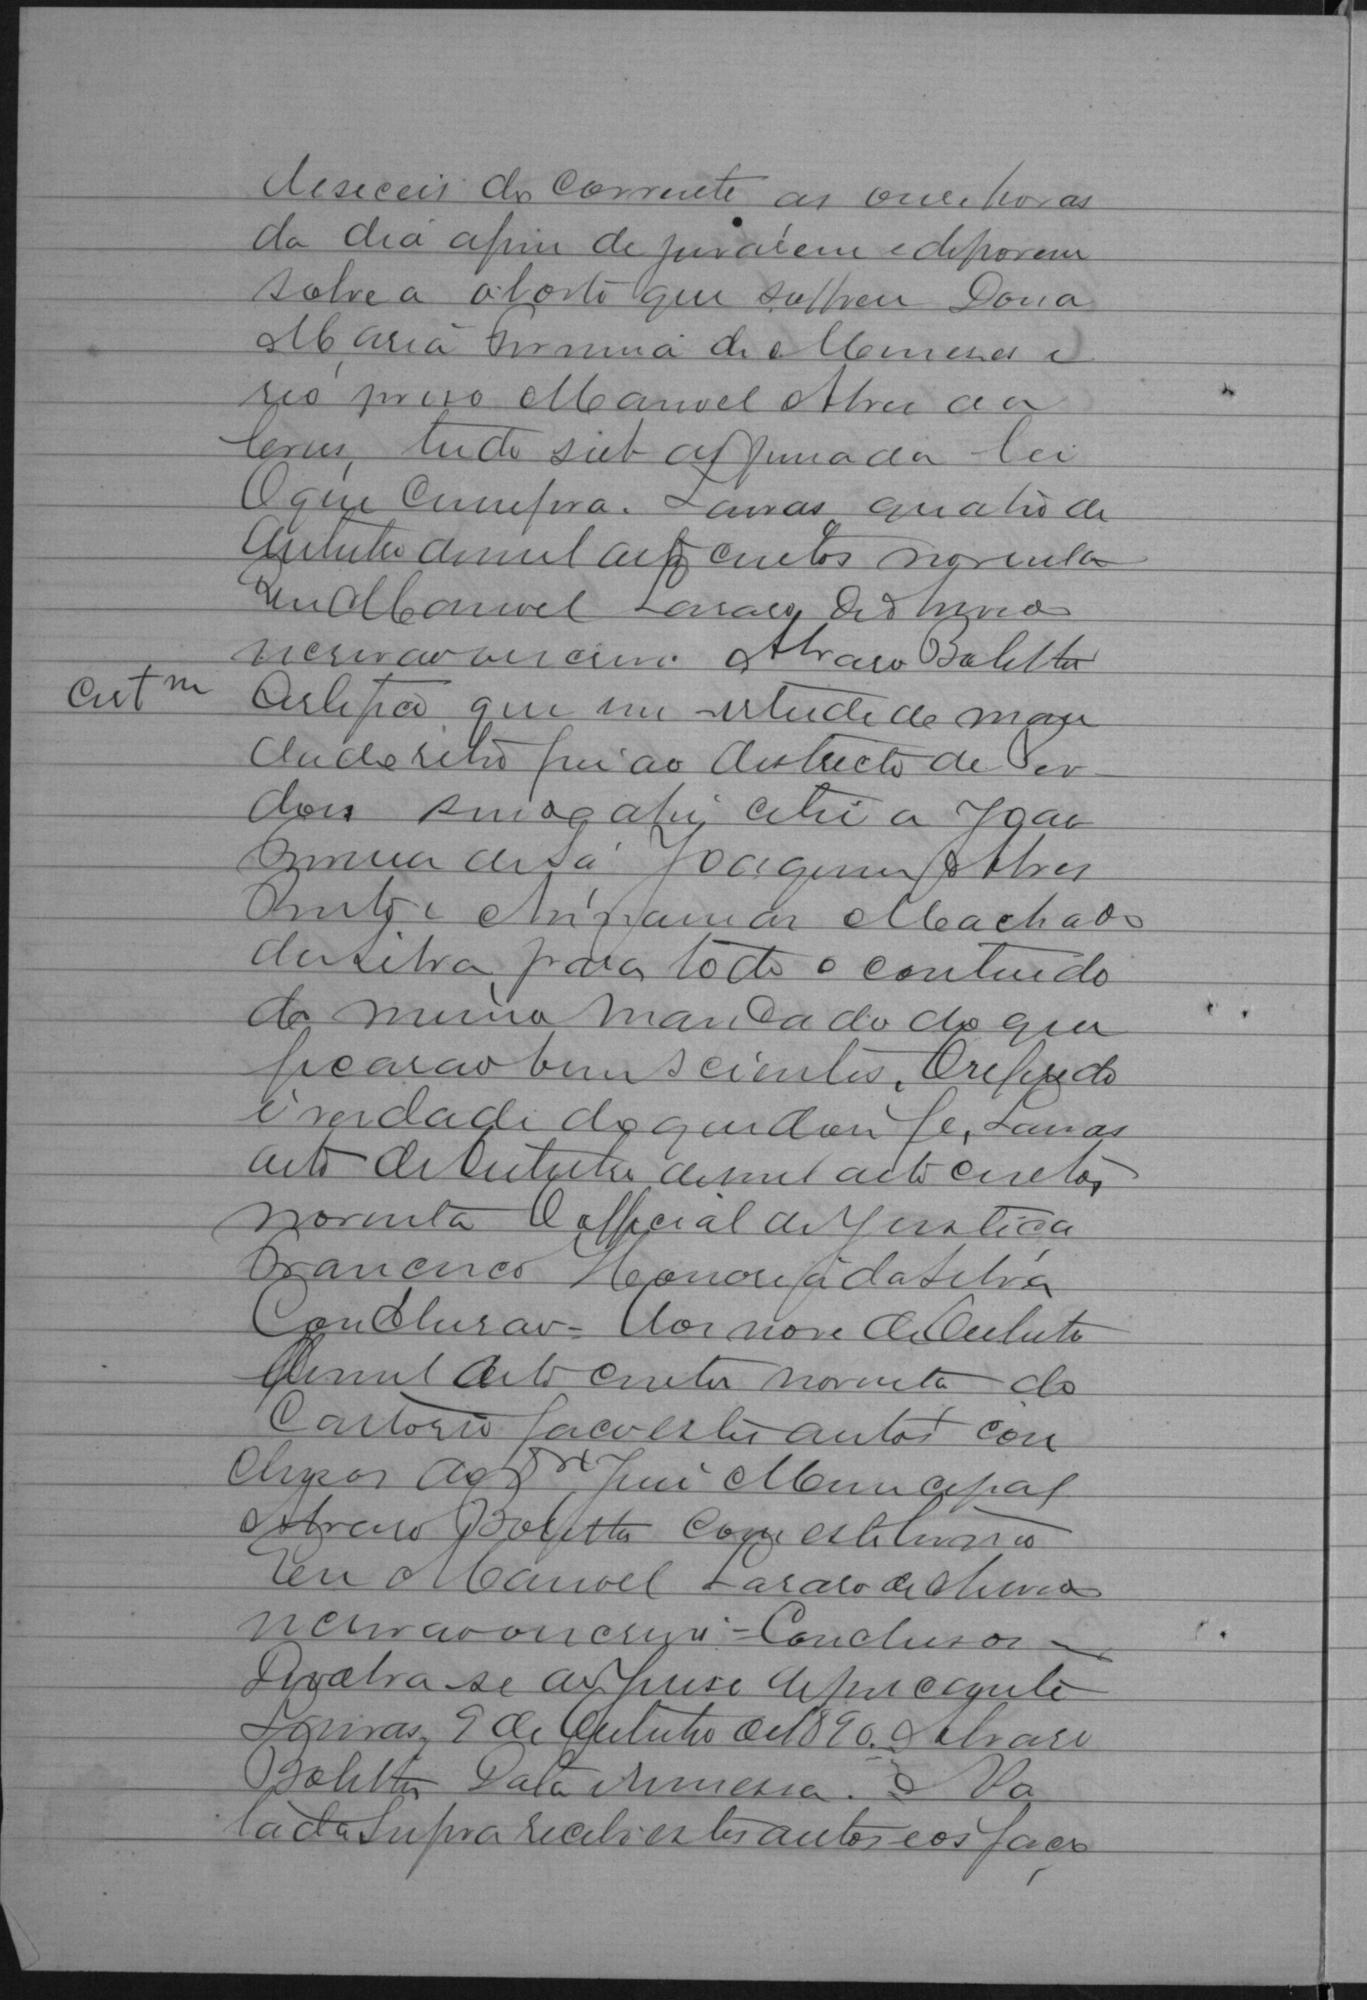 deseceis do Corrente as onze horas
da dia afim de jurarem e deporem
sobre a aborto que soffreu Dona
Maria Firmina de Meneses e
reo preso Manoel Alves de
tudo sub as penas da lei
O que Cumpra. Lavras quatro de
Outubro de mil oito centos noventa
Eu Manoel Lazaro de
escrivão escrevi. Alvaro Botelho
Cert.m
Certifico que em virtude do man
dado retro fui ao destricto de Per
dões e ahi citei a João
de Sá Joaquim Alves
Pinto e Machado
da Silva para todo o contiudo
do mesmo mandado do que
ficarão bem scientes. O referido
é verdade do que dou fé. Lavras
oito de Outubro de mil oito centos
noventa O official de Justiça
Francisco Honorio da Silva
Conclusão = Aos nove de Outubro
de mil oito centos noventa do
Cartorio faço estes autos con
clusos ao Dr Juiz Municipal
Alvaro Botelho Com este termo
Eu Manoel Lazaro de
escrivão escrevi = Conclusos
Devolva-se ao Juiso deprecante
Lavras, 9 de Outubro de 1890. Alvaro
Botelho Data e remessa. Na
data Supra recebi estes autos e os faço